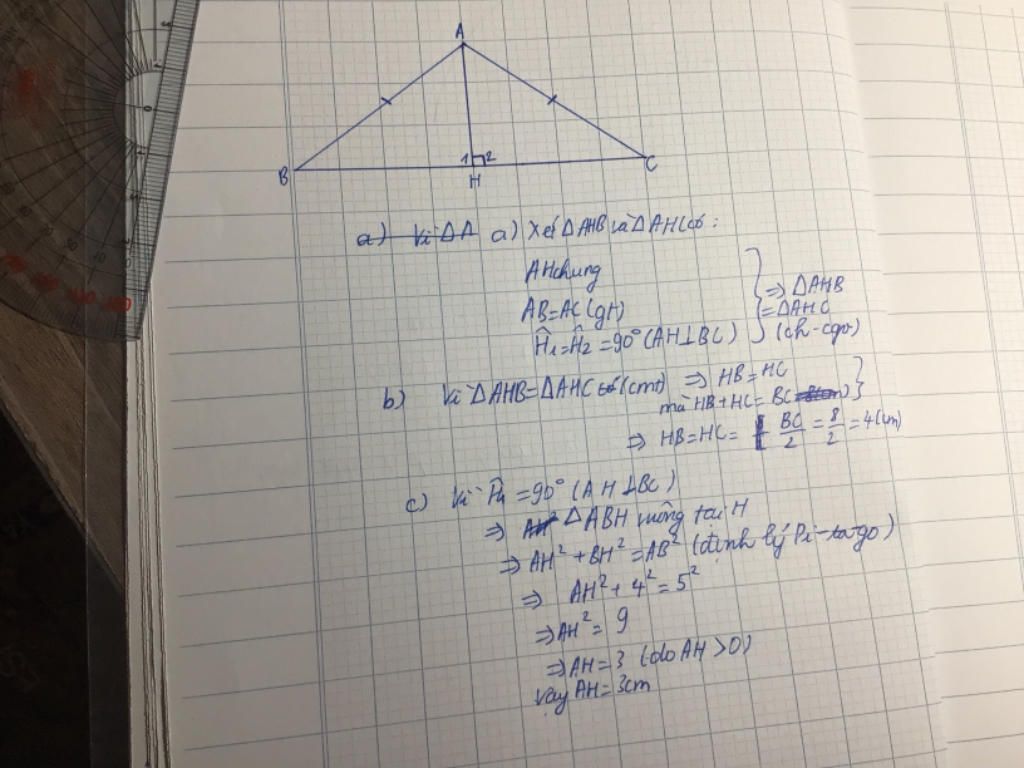 A
B
1 2
C
H
a) Vì ΔA a) Xét ΔAHB và ΔAHC có:
AH chung
AB=AC (gt)
Ĥ₁=Ĥ₂ =90° (AH⊥BC)
=> ΔAHB
= ΔAHC
(ch-cgv)
b) Vì ΔAHB=ΔAHC (cmt) => HB=HC
mà HB+HC= BC
=> HB=HC= BC/2 = 8/2 =4(cm)
c) Vì Ĥ₁ =90° (AH⊥BC)
=> ΔABH vuông tại H
=> AH² + BH² =AB² (định lý Pi-ta-go)
=> AH²+ 4² = 5²
=> AH² = 9
=> AH=3 (do AH >0)
Vậy AH=3cm